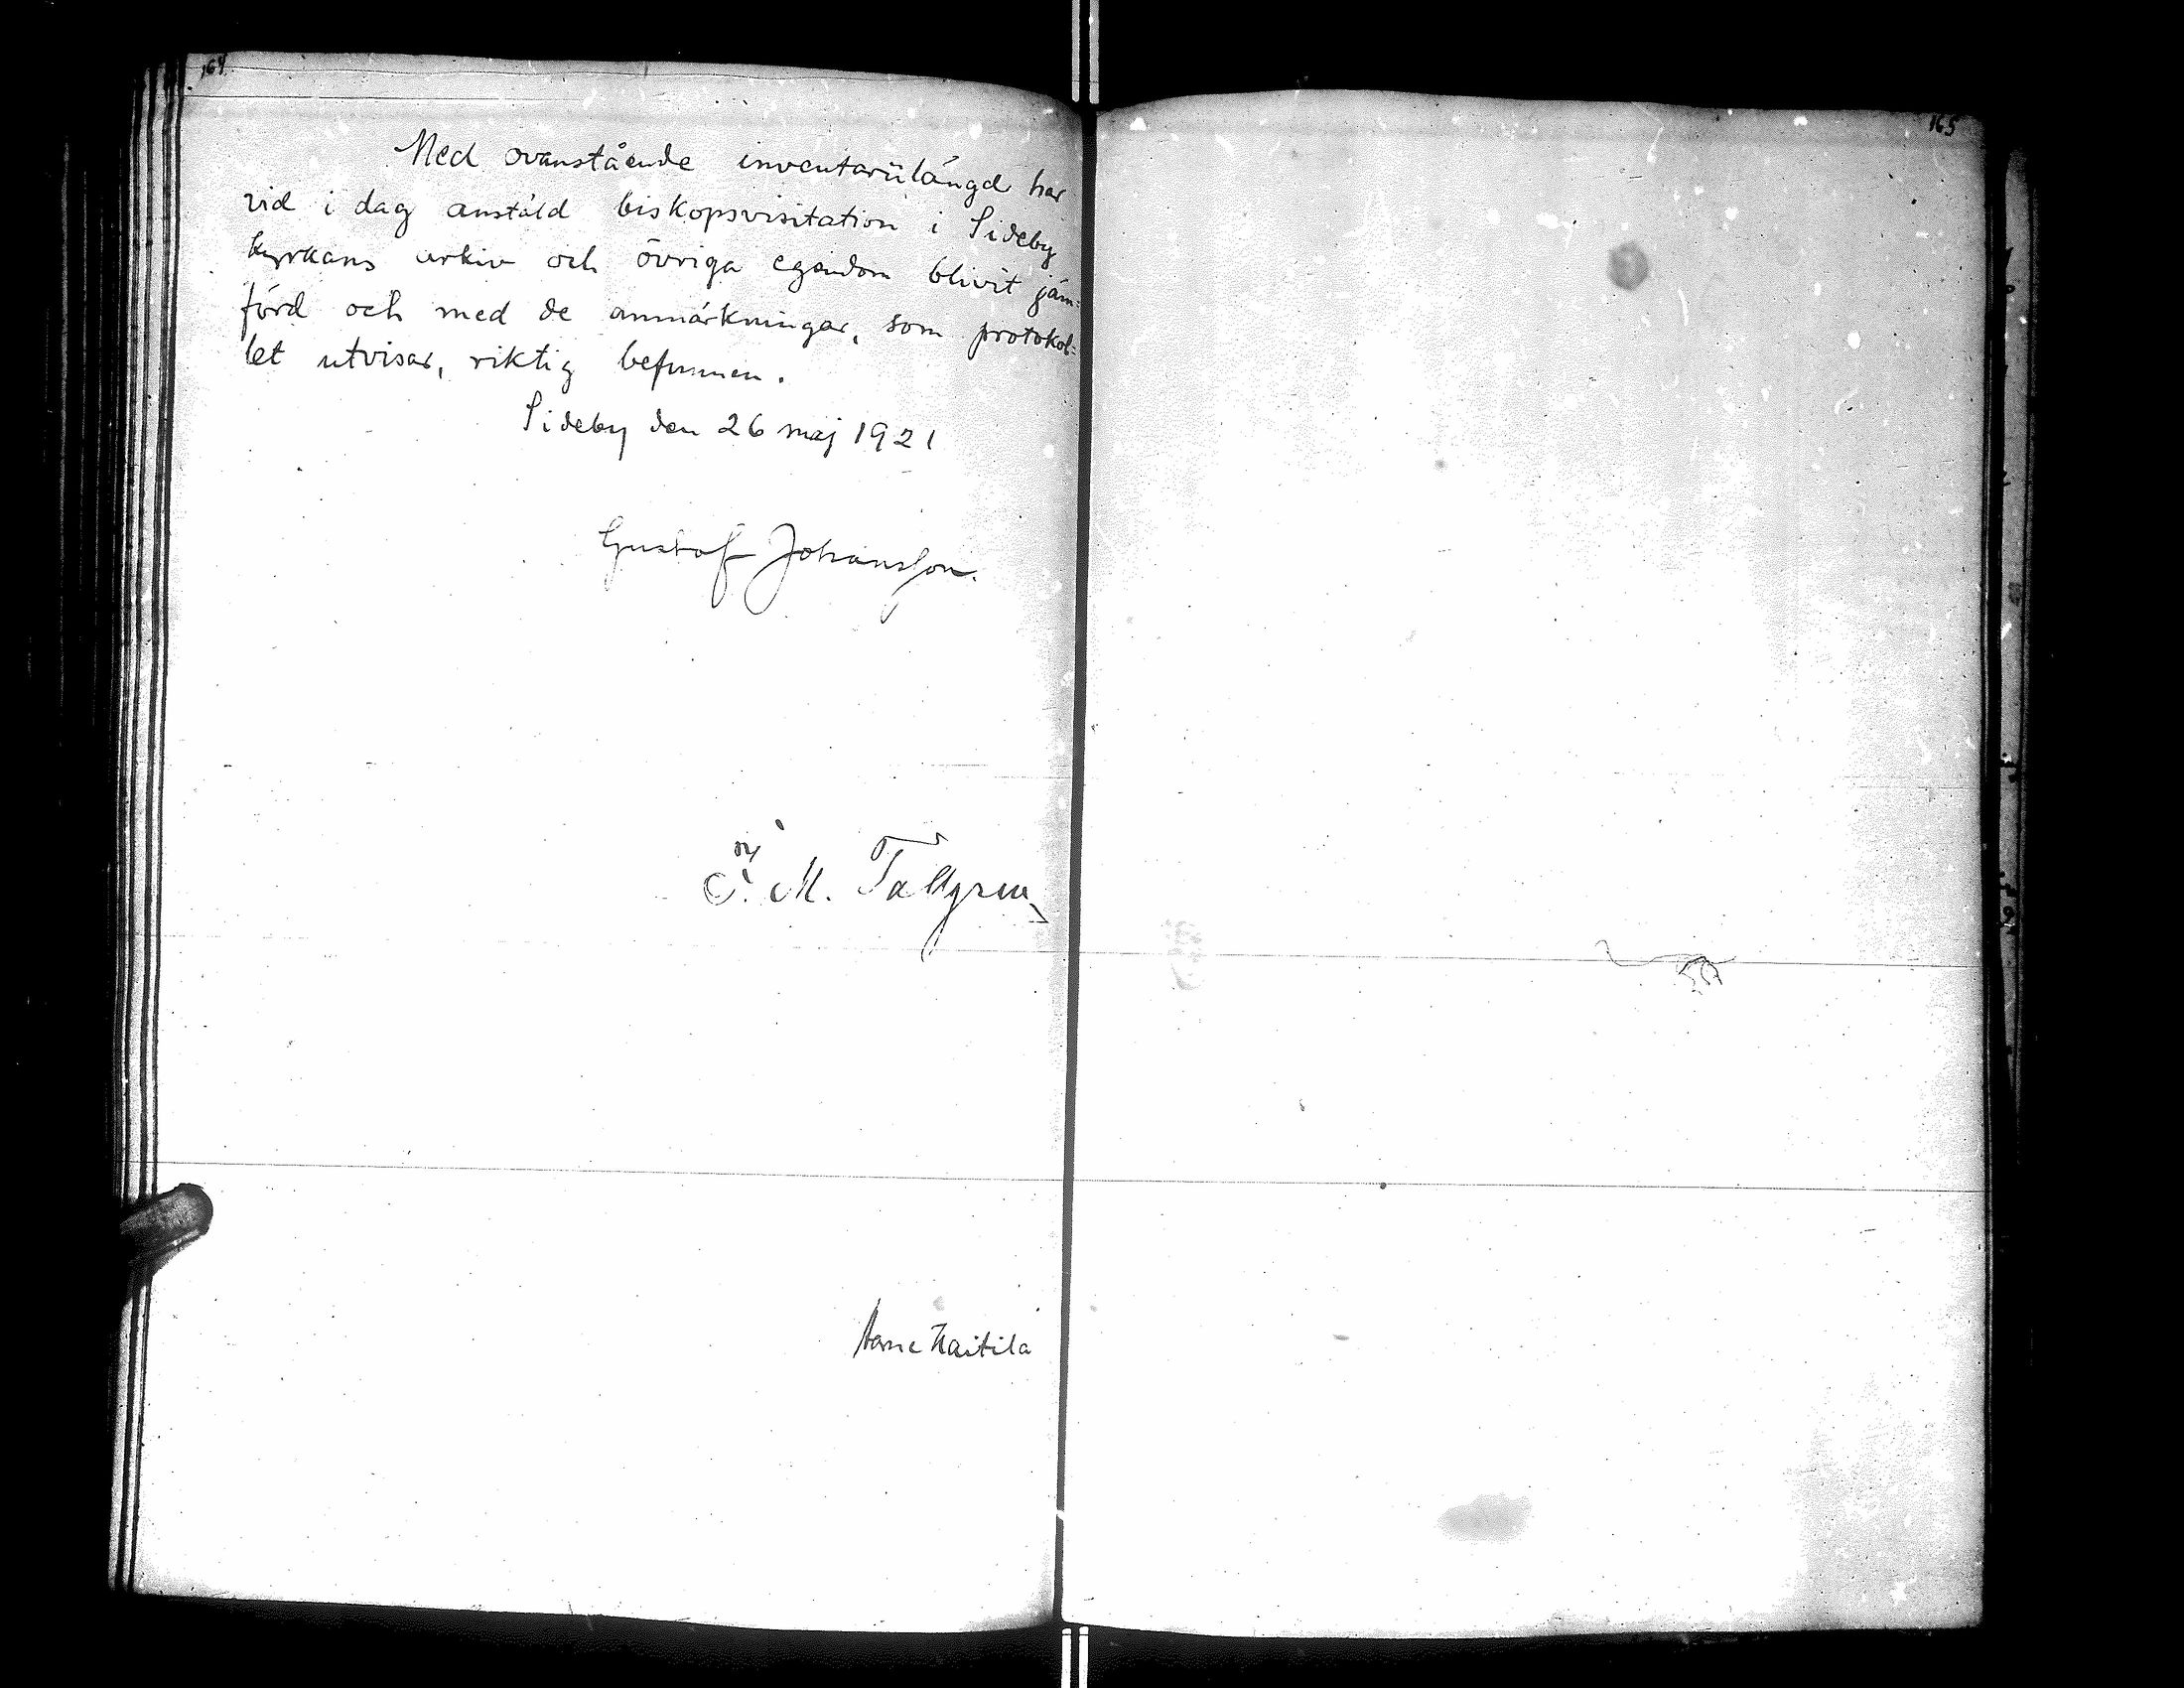 164
Med ovanstående inventariilängd har
vid i dag anstäld biskopsvisitation i Sideby
kyrkans arkiv och övriga egendom blivit jäm-
förd och med de anmärkningar, som protokol-
let utvisar, riktig befunnen.
Sideby den 26 maj 1921
Gustaf Johansson.
M. Tallgren
Haitila
165